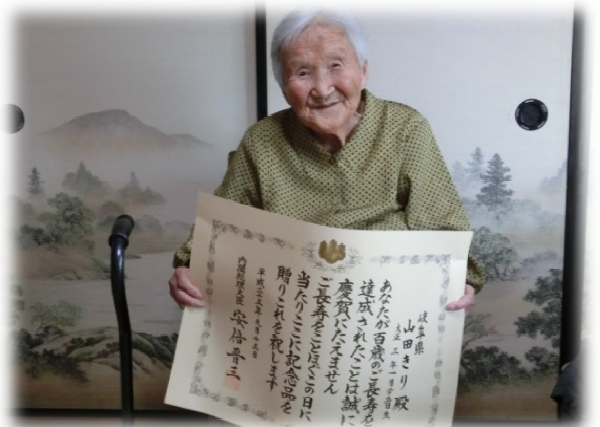 岐阜県
山田きり殿
大正三年一月
あなたが百歳のご長寿を
達成されたことは誠に
慶賀にたえません
ご長寿をことほぎこの日に
当たりここに記念品を
贈りこれを祝します
平成二十五年九月十五日
内閣総理大臣 安倍晋三